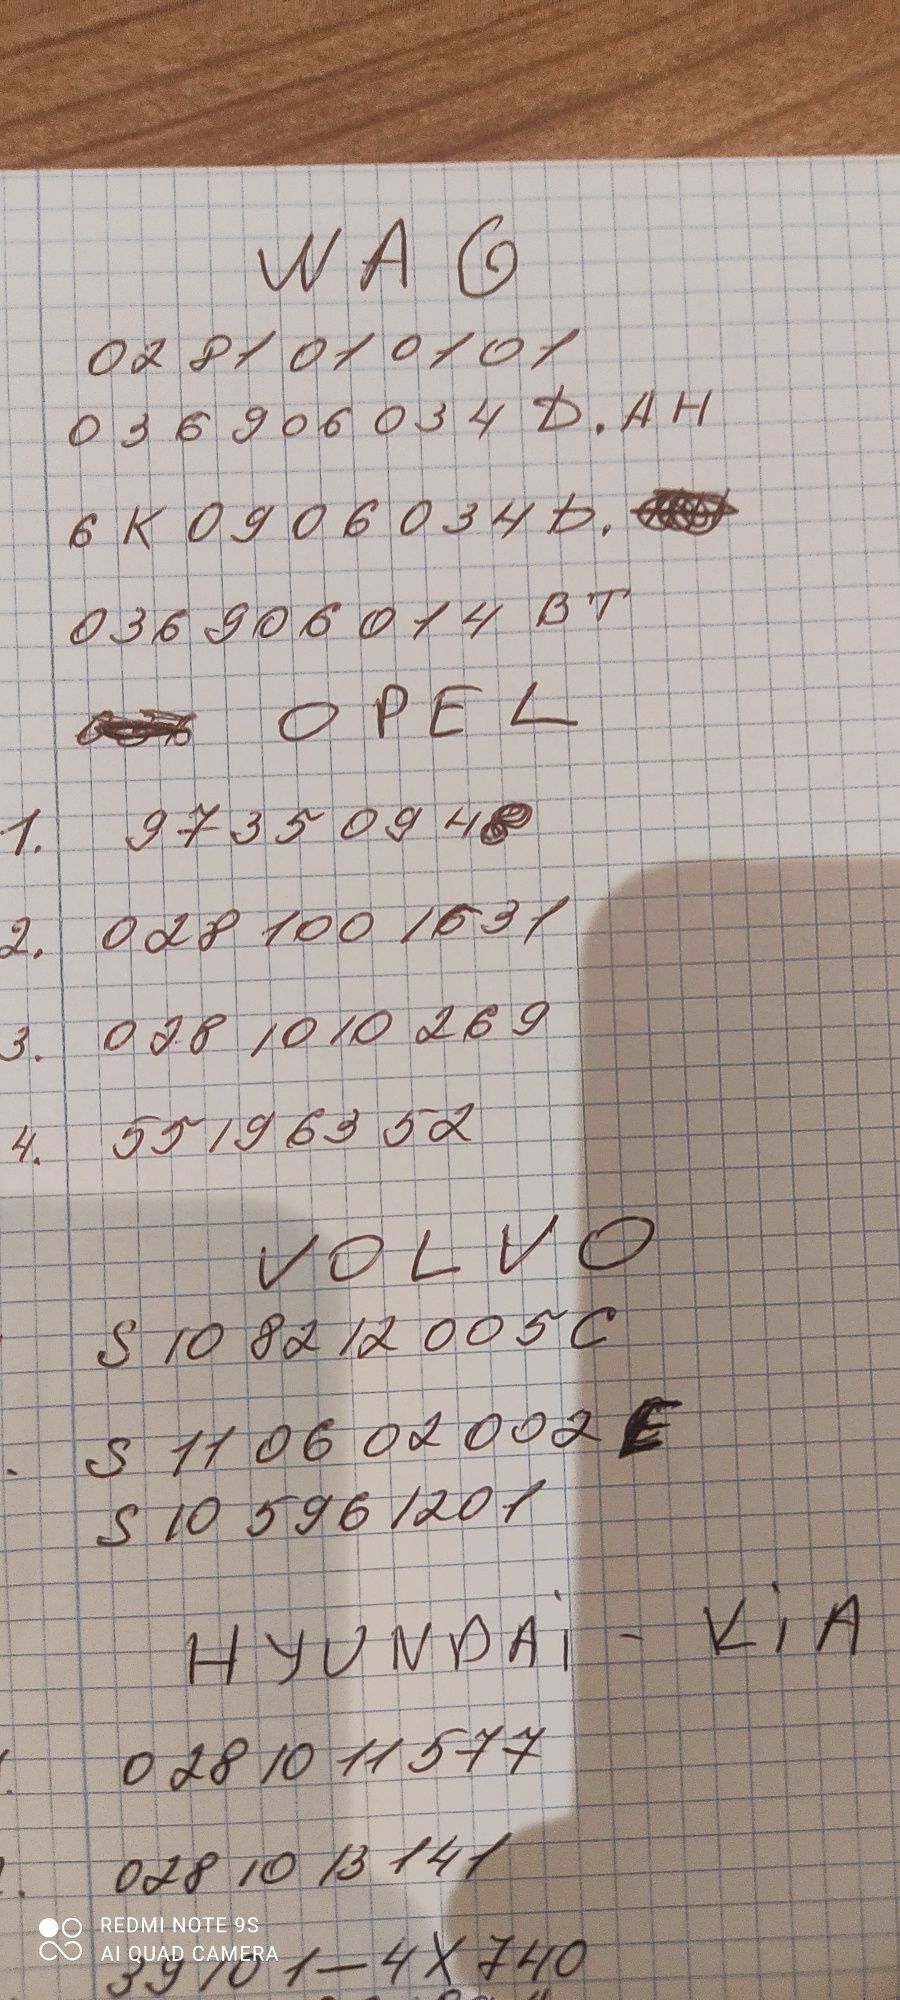 WAG
0281010101
036906034D.AH
6K0906034D.
036906014BT
OPEL
1. 973509448
2. 0281001631
3. 0281010269
4. 55196352
VOLVO
S108212005C
S110602002E
S105961201
HYUNDAi - KiA
0281011577
0281013141
39101-4X740
REDMI NOTE 9S
AI QUAD CAMERA